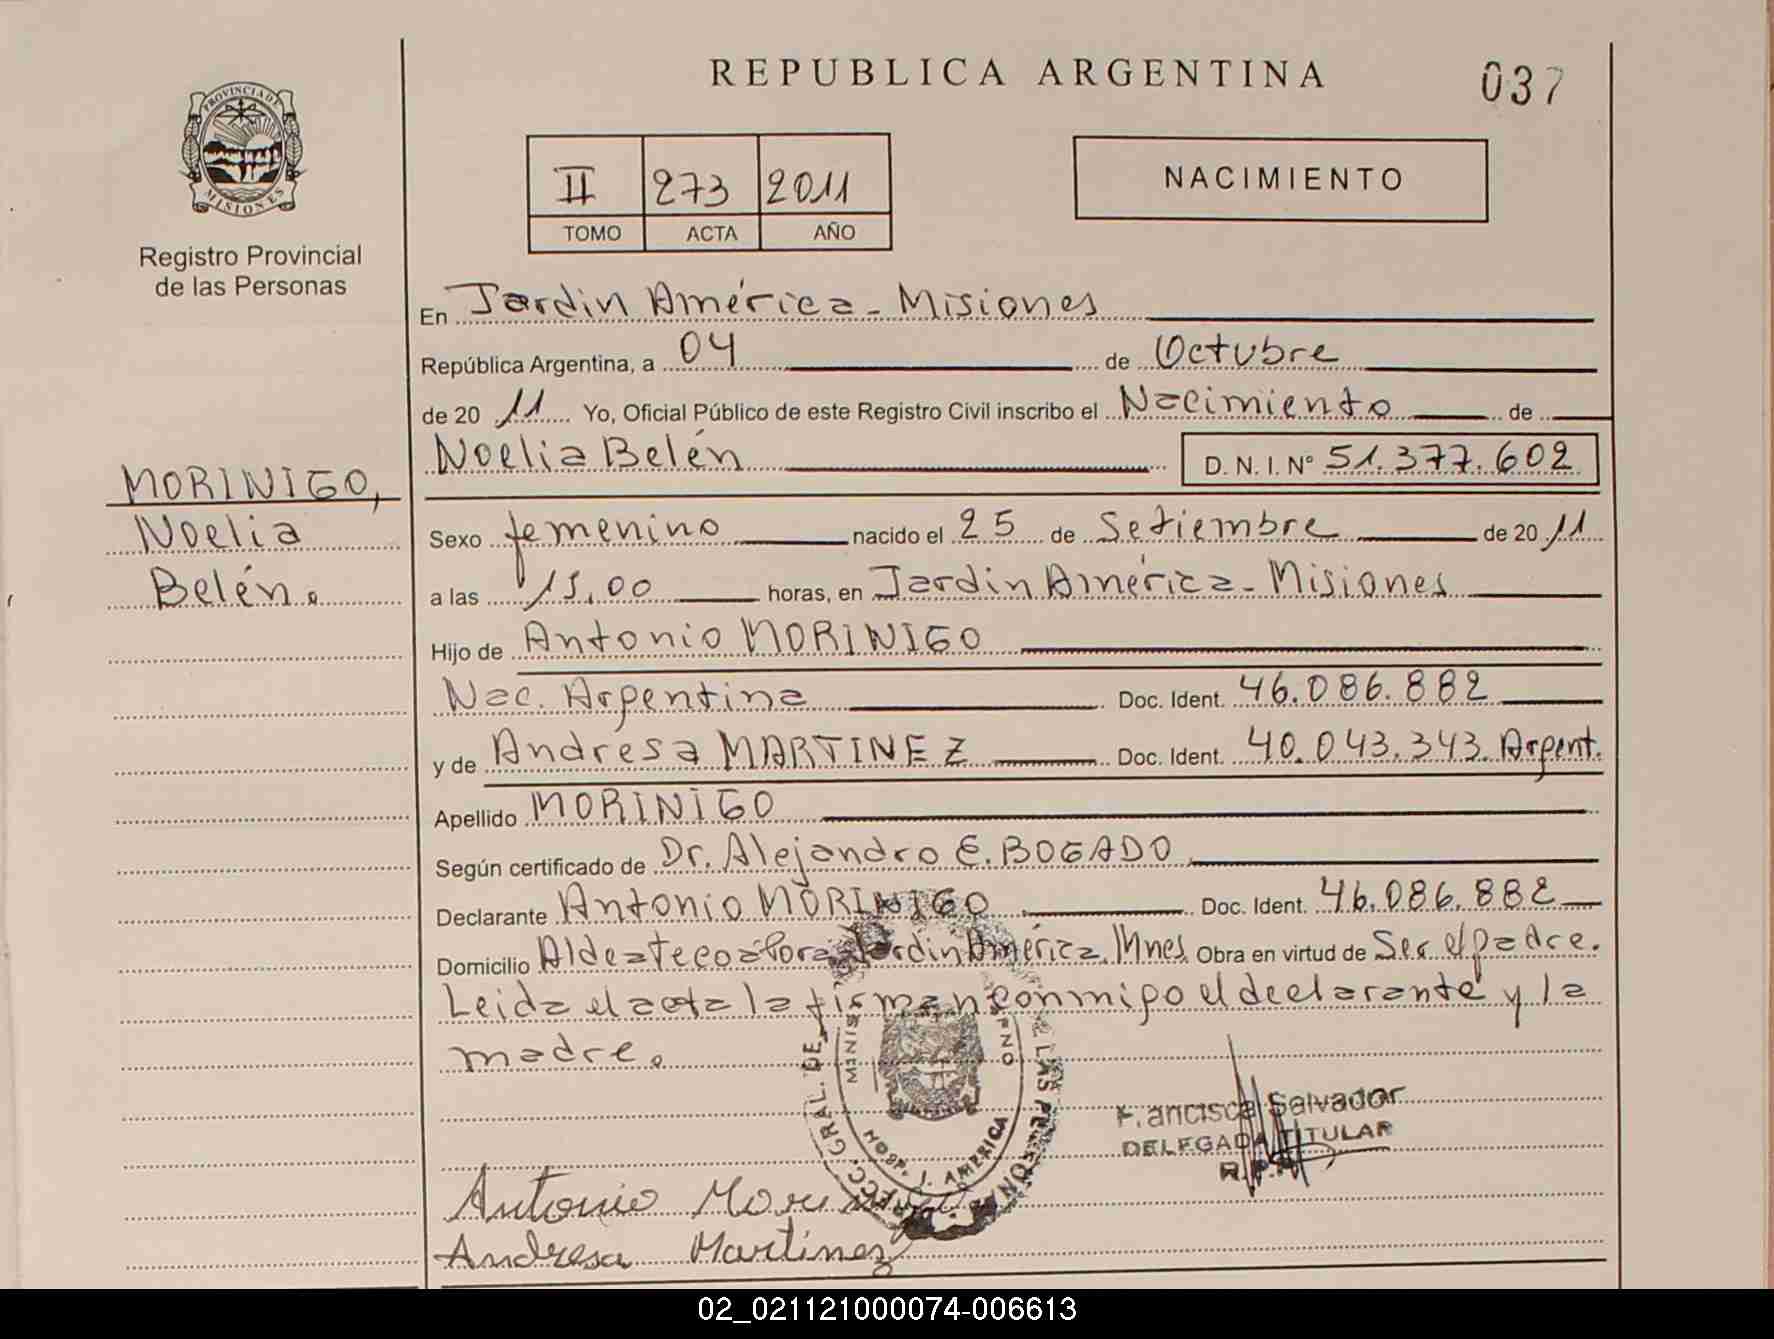 REPUBLICA ARGENTINA
037
PROVINCIA DE
MISIONES
Registro Provincial
de las Personas
II 273 2011
TOMO ACTA AÑO
NACIMIENTO
En Jardin América - Misiones
República Argentina, a 04 de Octubre
de 20 11 Yo, Oficial Público de este Registro Civil inscribo el Nacimiento de
Noelia Belén D. N. I. N° 51.377.602
MORINIGO,
Noelia
Belén.
Sexo femenino nacido el 25 de Setiembre de 20 11
a las 15,00 horas, en Jardin América - Misiones
Hijo de Antonio MORINIGO
Nac. Argentina Doc. Ident. 46.086.882
y de Andresa MARTINEZ Doc. Ident. 40.043.343. Argent.
Apellido MORINIGO
Según certificado de Dr. Alejandro E. BOGADO
Declarante Antonio MORINIGO Doc. Ident. 46.086.882
Domicilio Aldea Jardin América. Mnes. Obra en virtud de Ser el padre.
Leida el acta la firman conmigo el declarante y la
madre.
HOSP. J. AMERICA
Francisca Salvador
DELEGADA TITULAR
R.P.P.
Antonio
Andresa Martinez
02_021121000074-006613